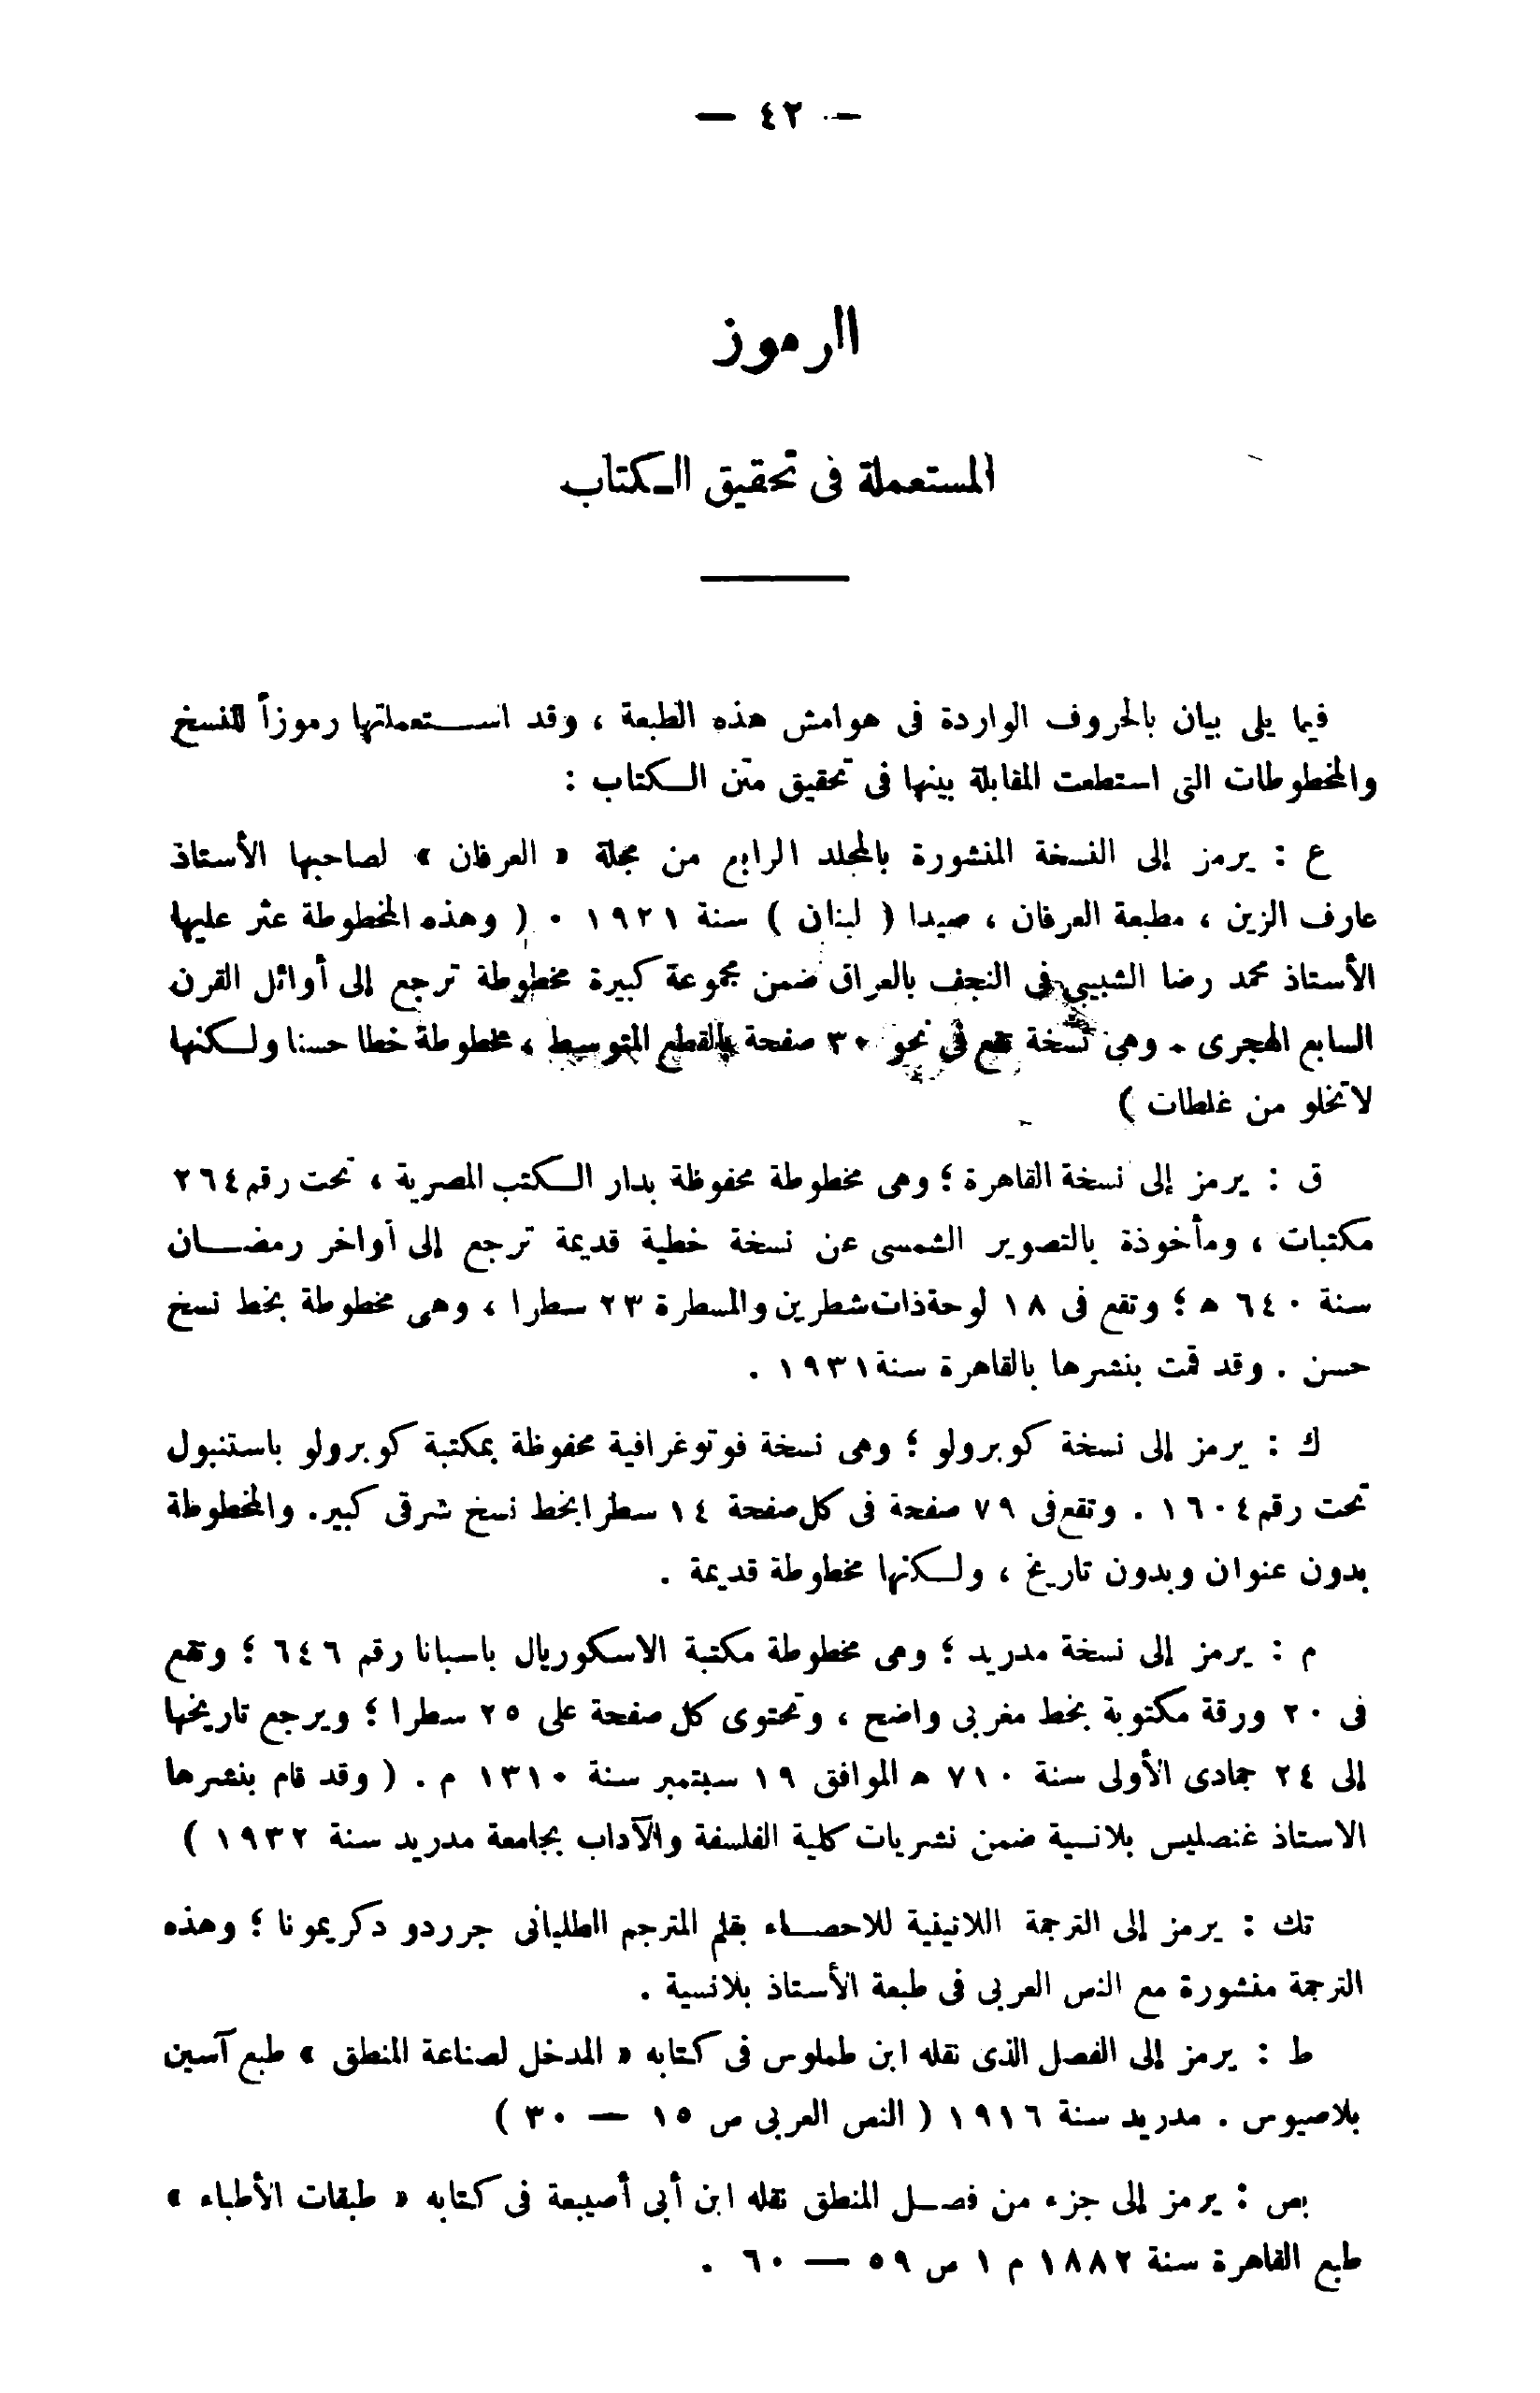 — ٤٢ —
الرموز
المستعملة فى تحقيق الكتاب
فيما يلى بيان بالحروف الواردة فى هوامش هذه الطبعة ، وقد استعملتها رموزاً للنسخ
والمخطوطات التى استطعت المقابلة بينها فى تحقيق متن الكتاب :
ع : يرمز إلى النسخة المنشورة بالمجلد الرابع من مجلة « العرفان » لصاحبها الأستاذ
عارف الزين ، مطبعة العرفان ، صيدا ( لبنان ) سنة ١٩٢١ . ( وهذه المخطوطة عثر عليها
الأستاذ محمد رضا الشبيبى فى النجف بالعراق ضمن مجموعة كبيرة مخطوطة ترجع إلى أوائل القرن
السابع الهجرى . وهى نسخة تقع فى نحو ٣٠ صفحة بالقطع المتوسط ، مخطوطة خطا حسنا ولكنها
لا تخلو من غلطات )
ق : يرمز إلى نسخة القاهرة ؛ وهى مخطوطة محفوظة بدار الكتب المصرية ، تحت رقم ٢٦٤
مكتبات ، ومأخوذة بالتصوير الشمسى عن نسخة خطية قديمة ترجع إلى أواخر رمضان
سنة ٦٤٠ ه ؛ وتقع فى ١٨ لوحة ذات شطرين والمسطرة ٢٣ سطرا ، وهى مخطوطة بخط نسخ
حسن . وقد قمت بنشرها بالقاهرة سنة ١٩٣١ .
ك : يرمز إلى نسخة كوبرولو ؛ وهى نسخة فوتوغرافية محفوظة بمكتبة كوبرولو باستنبول
تحت رقم ١٦٠٤ . وتقع فى ٧٩ صفحة فى كل صفحة ١٤ سطرا بخط نسخ شرقى كبير. والمخطوطة
بدون عنوان وبدون تاريخ ، ولكنها مخطوطة قديمة .
م : يرمز إلى نسخة مدريد ؛ وهى مخطوطة مكتبة الاسكوريال باسبانا رقم ٦٤٦ ؛ وتقع
فى ٢٠ ورقة مكتوبة بخط مغربى واضح ، وتحتوى كل صفحة على ٢٥ سطرا ؛ ويرجع تاريخها
إلى ٢٤ جمادى الأولى سنة ٧١٠ ه الموافق ١٩ سبتمبر سنة ١٣١٠ م . ( وقد قام بنشرها
الاستاذ غنصليس بلانسية ضمن نشريات كلية الفلسفة والآداب بجامعة مدريد سنة ١٩٣٢ )
تك : يرمز إلى الترجمة اللاتينية للاحصاء بقلم المترجم الطليانى جرردو دكريمونا ؛ وهذه
الترجمة منشورة مع النص العربى فى طبعة الأستاذ بلانسية .
ط : يرمز إلى الفصل الذى نقله ابن طملوس فى كتابه « المدخل لصناعة المنطق » طبع آسين
بلاصيوس . مدريد سنة ١٩١٦ ( النص العربى ص ١٥ — ٣٠ )
بص : يرمز إلى جزء من فصل المنطق نقله ابن أبى أصيبعة فى كتابه « طبقات الأطباء »
طبع القاهرة سنة ١٨٨٢ م ١ ص ٥٩ — ٦٠ .